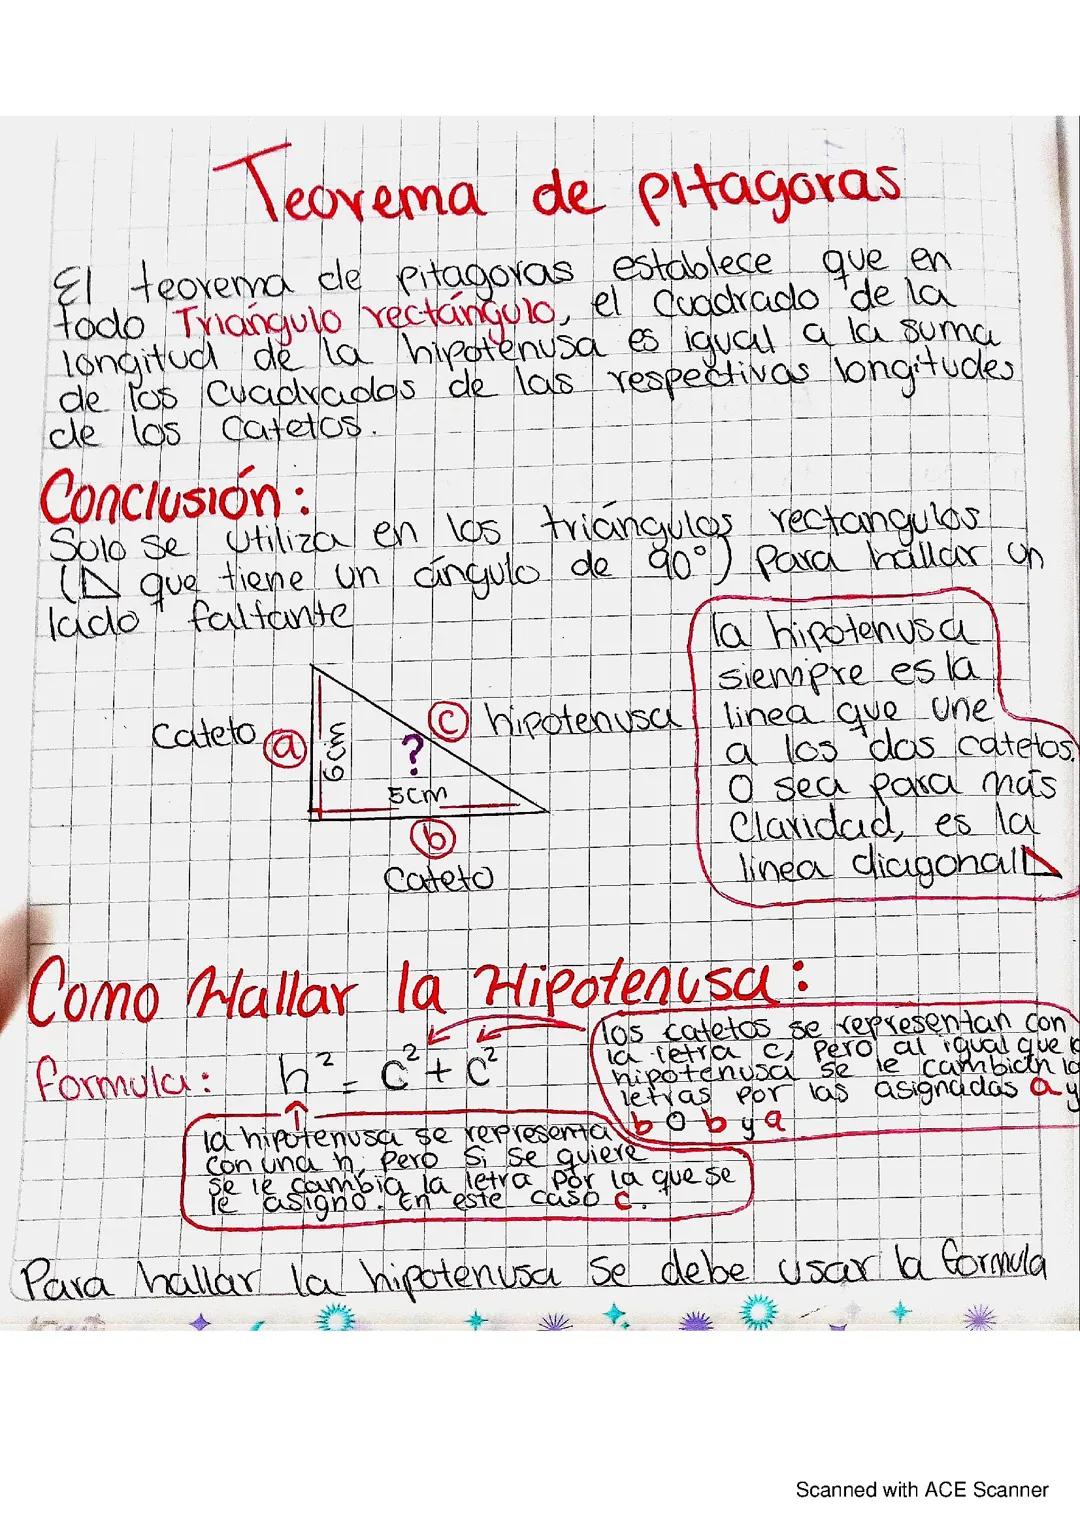 Teorema de pitagoras
El teorema de Pitagoras establece que en
todo Triángulo rectángulo, el cuadrado de la
longitud de la hipotenusa es igual a la suma
de los cuadrados de las respectivas longitudes
de los catetos.
Conclusión:
Solo se utiliza en los triángulos rectangulos
( que tiene un ángulo de 90°) Para hallar un
lado faltante
la hipotenusa
siempre es la
linea que une
a los dos catetos.
O sea para más
Claridad, es la
linea diagonal
Cateto a
6cm
?
c hipotenusa
5cm
b
Cateto
Como Hallar la Hipotenusa:
formula: h² = c² + c²
los catetos se representan con
la letra c, pero al igual que la
hipotenusa se le cambian la
letras por las asignadas a y
b o b y a
la hipotenusa se representa
con una h, pero si se quiere
se le cambia la letra por la que se
le asigno. En este caso c.
Para hallar la hipotenusa se debe usar la formula
Scanned with ACE Scanner